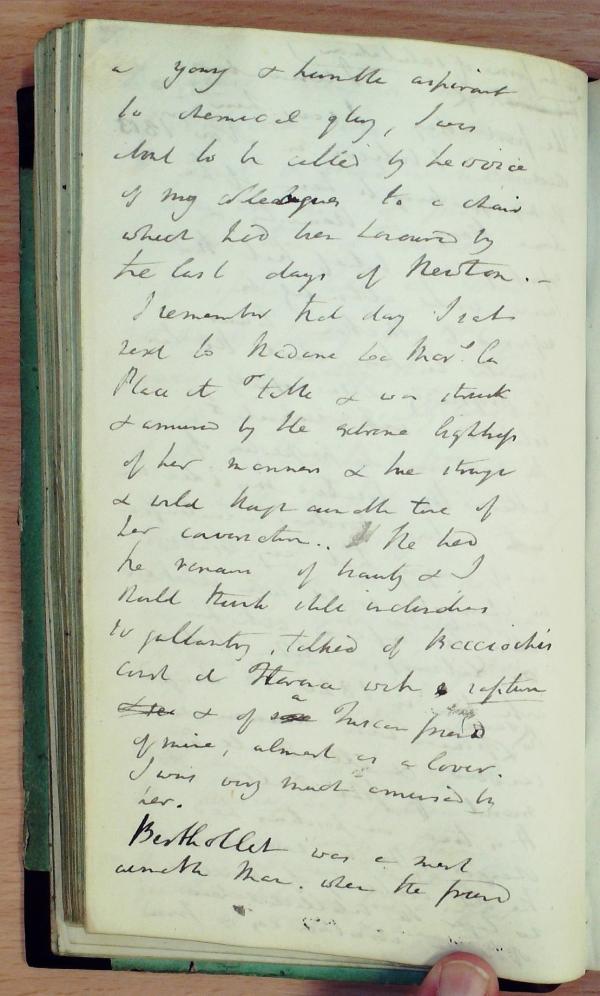 a young & humble aspirant
to chemical glory, I was
about to be called by the voice
of my colleagues to a chair
which had been honoured by
the last days of Newton. -
I remember that day I sat
next to Madame La Mar.se La
Place at table & was struck
& amused by the extreme lightness
of her manners & the strange
& wild tone of
her conversation.. She had
the remains of beauty & I
should think still inclination
to gallantry, talked of Bacciochi's
court at Florence with rapture
& of a Tuscan friend
of mine, almost as a lover.
I was very much amused by
her.
Berthollet was a most
amiable Man. when the friend